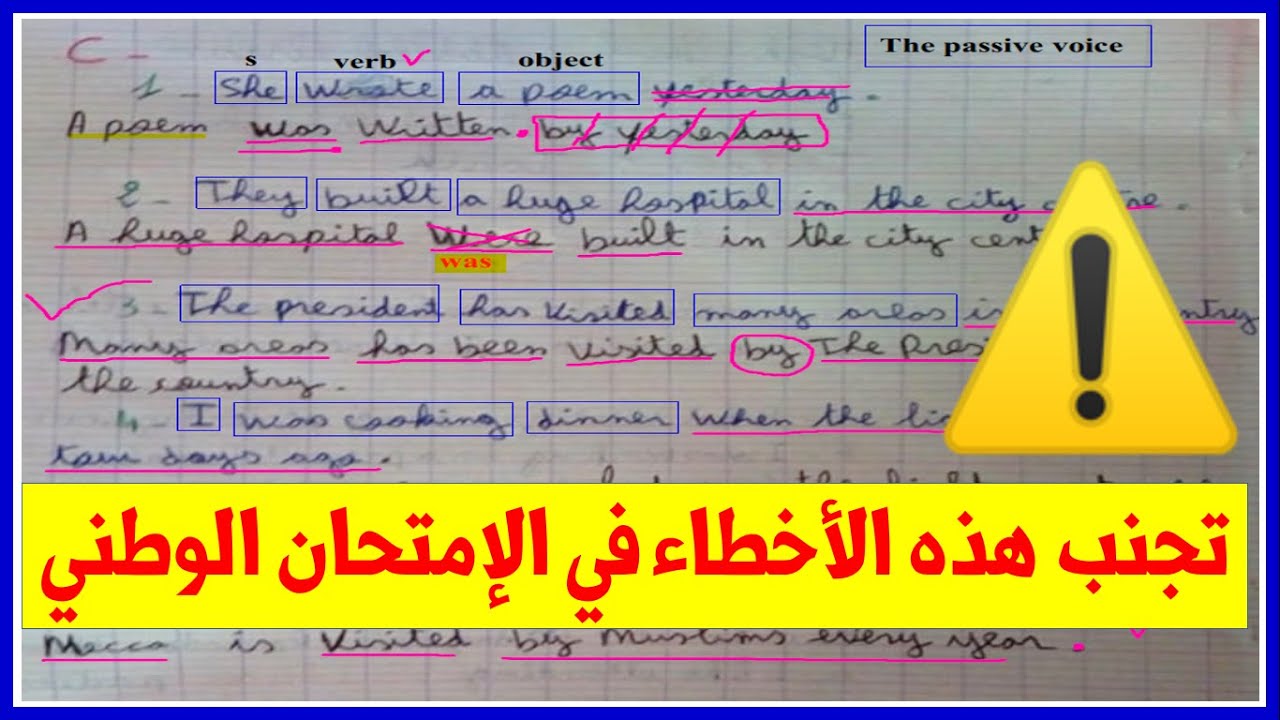 The passive voice
C-
s verb object
1- She wrote a poem yesterday.
A poem was written. by yesterday
2- They built a huge hospital in the city
A huge hospital were built in the city
was
3- The president has visited many areas
Many areas has been visited by The
the country.
4- I was cooking dinner when the
days ago.
تجنب هذه الأخطاء في الإمتحان الوطني
Mecca is visited by Muslims every year.